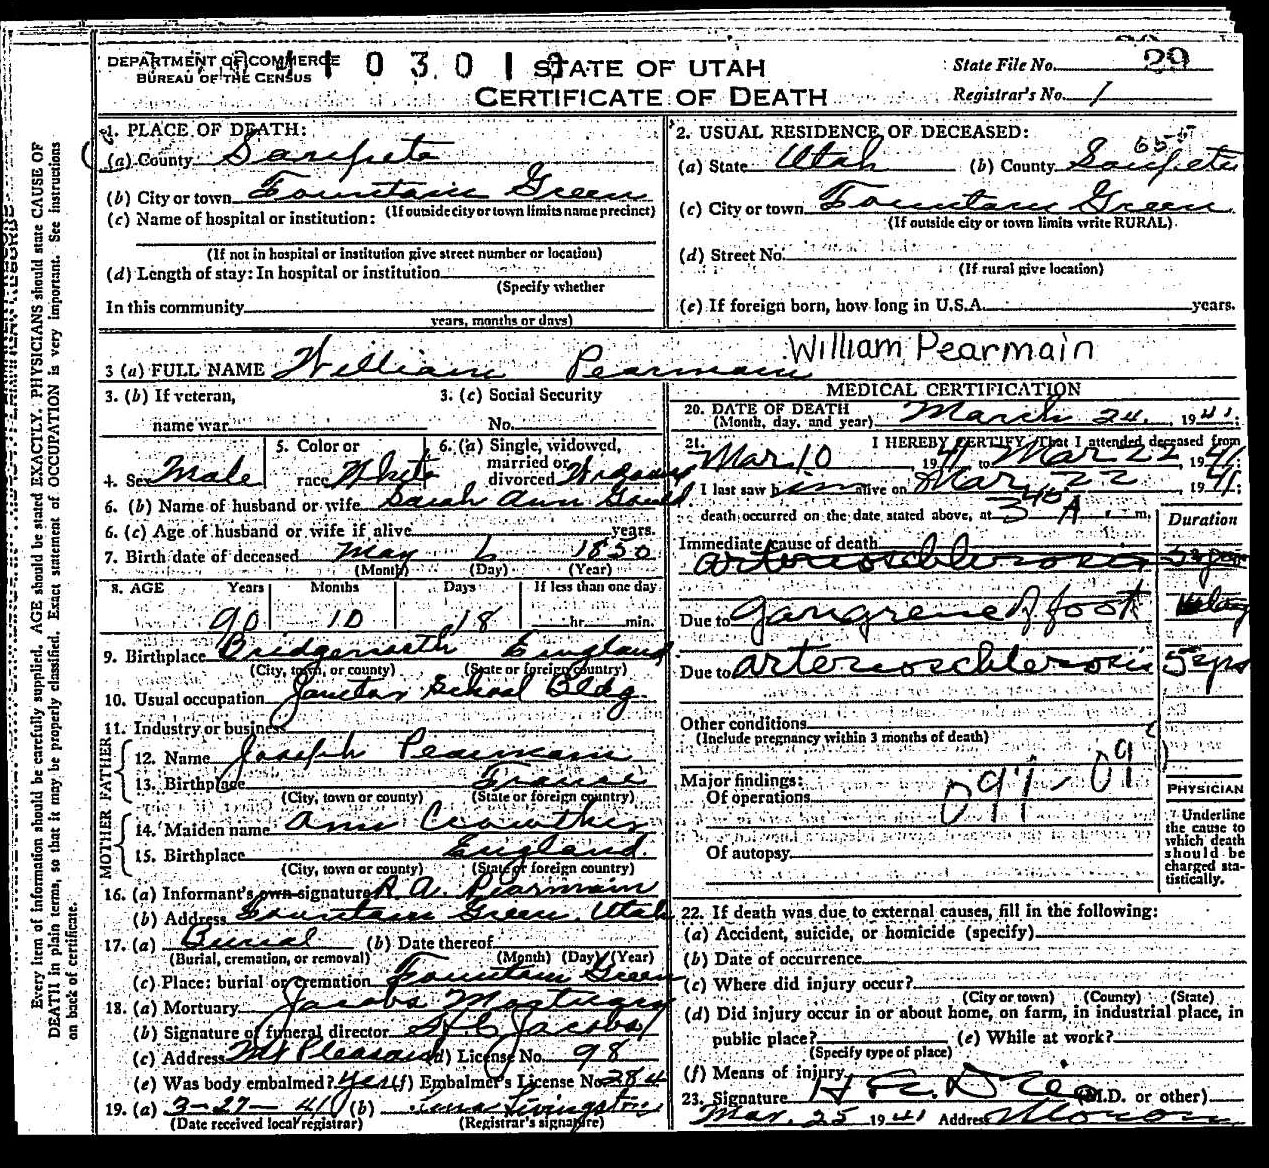 DEPARTMENT OF COMMERCE
BUREAU OF THE CENSUS
STATE OF UTAH
CERTIFICATE OF DEATH
State File No. 29
Registrar's No. 1
1. PLACE OF DEATH:
(a) County Sanpete
(b) City or town Fountain Green
(If outside city or town limits name precinct)
(c) Name of hospital or institution:
(If not in hospital or institution give street number or location)
(d) Length of stay: In hospital or institution
(Specify whether
In this community
years, months or days)
2. USUAL RESIDENCE OF DECEASED:
(a) State Utah (b) County Sanpete
(c) City or town Fountain Green
(If outside city or town limits write RURAL)
(d) Street No.
(If rural give location)
(e) If foreign born, how long in U.S.A. years.
3 (a) FULL NAME William Pearmain
William Pearmain
3. (b) If veteran, 3: (c) Social Security
name war No.
4. Sex Male 5. Color or race White 6. (a) Single, widowed, married or divorced
6. (b) Name of husband or wife Sarah Ann Gould
6. (c) Age of husband or wife if alive years.
7. Birth date of deceased May 6 1850
(Month) (Day) (Year)
8. AGE Years Months Days If less than one day
90 10 18 hr. min.
9. Birthplace Bridgenorth England
(City, town, or county) (State or foreign country)
10. Usual occupation Janitor School Bldg
11. Industry or business
FATHER
12. Name Joseph Pearmain
13. Birthplace France
(City, town or county) (State or foreign country)
MOTHER
14. Maiden name Ann Crowther
15. Birthplace England
(City, town or county) (State or foreign country)
16. (a) Informant's own signature R. A. Pearmain
(b) Address Fountain Green, Utah
17. (a) Burial (b) Date thereof
(Burial, cremation, or removal) (Month) (Day) (Year)
(c) Place: burial or cremation Fountain Green
18. (a) Mortuary Jacobs Mortuary
(b) Signature of funeral director Jacobs
(c) Address Mt Pleasant (d) License No. 98
(e) Was body embalmed? yes (f) Embalmer's License No. 284
19. (a) 3-27-41 (b) Livingston
(Date received local registrar) (Registrar's signature)
MEDICAL CERTIFICATION
20. DATE OF DEATH March 24, 1941;
(Month, day, and year)
21. I HEREBY CERTIFY, That I attended deceased from
Mar 10, 1941 to Mar 22, 1941
I last saw him alive on Mar 22 1941;
death occurred on the date stated above, at 3 40 A. m.
Duration
Immediate cause of death
arterioschlerosis 5 yrs
Due to gangrene of foot
Due to arterioschlerosis 5 yrs
Other conditions
(Include pregnancy within 3 months of death)
Major findings:
Of operations
Of autopsy
PHYSICIAN
Underline
the cause to
which death
should be
charged sta-
tistically.
22. If death was due to external causes, fill in the following:
(a) Accident, suicide, or homicide (specify)
(b) Date of occurrence
(c) Where did injury occur?
(City or town) (County) (State)
(d) Did injury occur in or about home, on farm, in industrial place, in
public place? (e) While at work?
(Specify type of place)
(f) Means of injury
23. Signature (M.D. or other)
Mar. 25 1941 Address Moroni
Every item of information should be carefully supplied. AGE should be stated EXACTLY. PHYSICIANS should state CAUSE OF
DEATH in plain terms, so that it may be properly classified. Exact statement of OCCUPATION is very important. See instructions
on back of certificate.